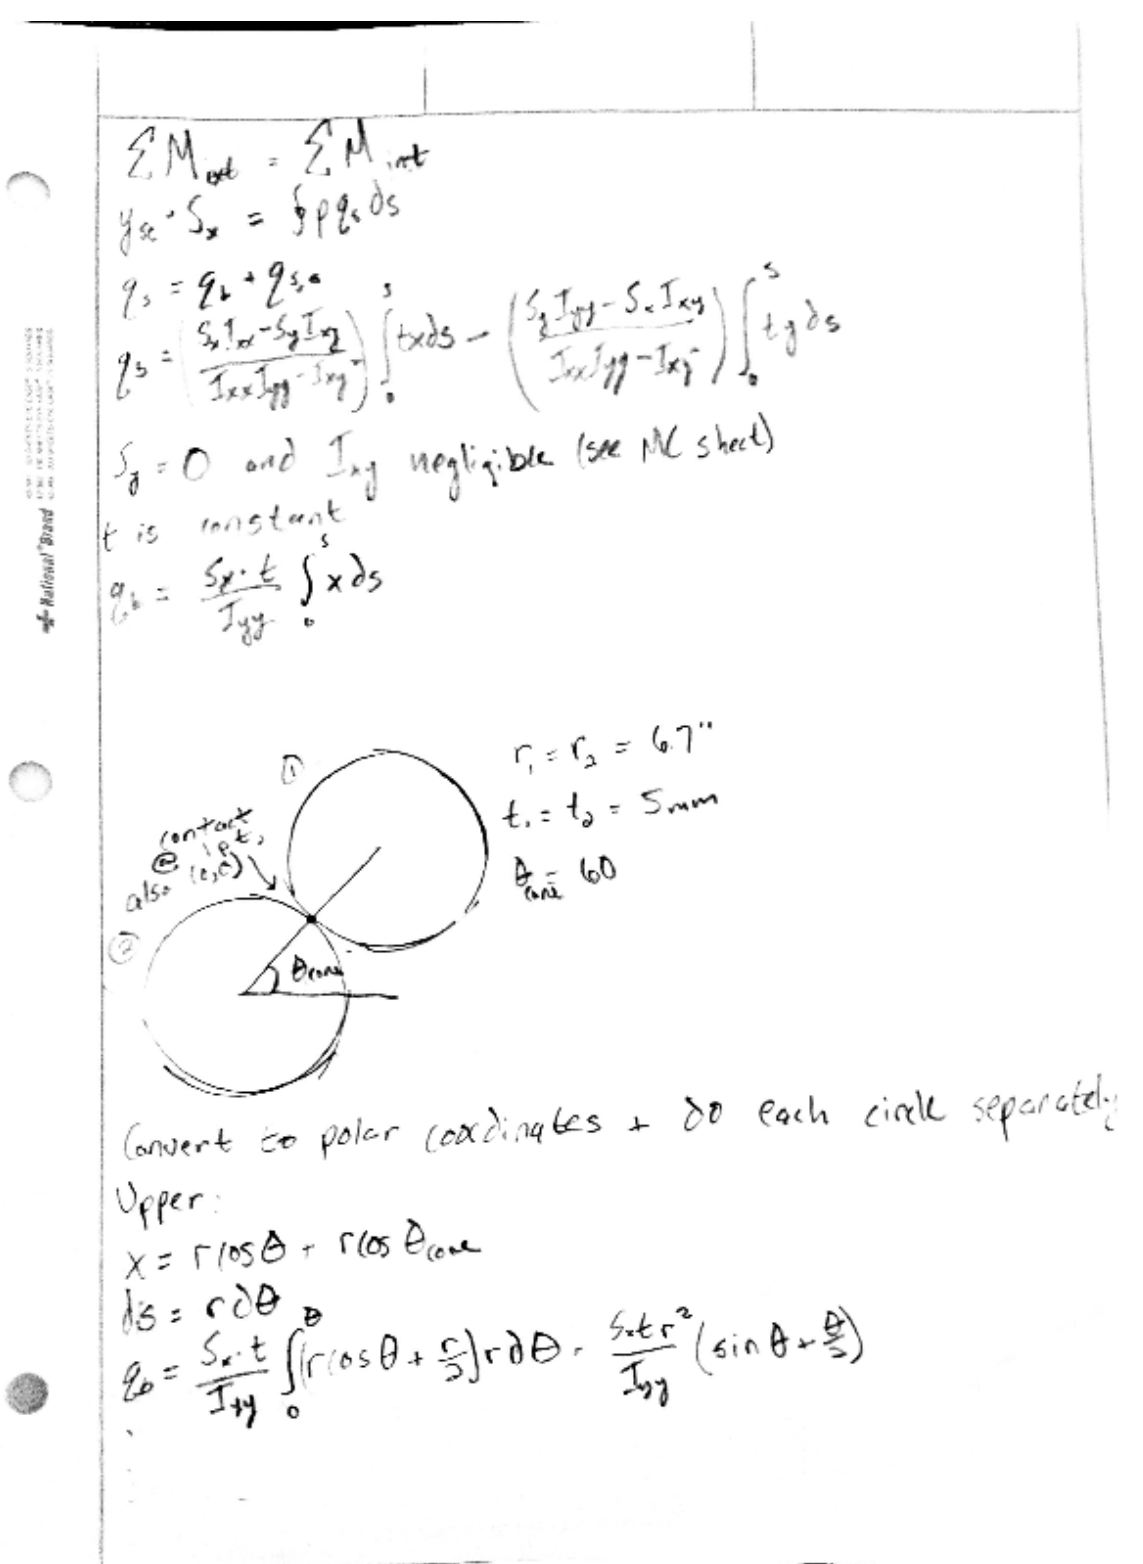 ΣM_ext = ΣM_int
y_sc · S_x = ∮ p q_s ds
q_s = q_b + q_s,o
q_s = ((S_x I_xx - S_y I_xy) / (I_xx I_yy - I_xy²)) ∫_0^s tx ds - ((S_y I_yy - S_x I_xy) / (I_xx I_yy - I_xy²)) ∫_0^s ty ds
S_y = 0 and I_xy negligible (see MC sheet)
t is constant
q_b = (S_x · t / I_yy) ∫_0^s x ds
National®Brand
①
r_1 = r_2 = 6.7"
t_1 = t_2 = 5mm
θ_cone = 60
contact
@ 1 pt,
also (0,0)
②
θ_cone
Convert to polar coordinates + do each circle separately
Upper:
x = r cos θ + r cos θ_cone
ds = r dθ
q_b = (S_x · t / I_yy) ∫_0^θ (r cos θ + r/2) r dθ = (S_x t r² / I_yy) (sin θ + θ/2)